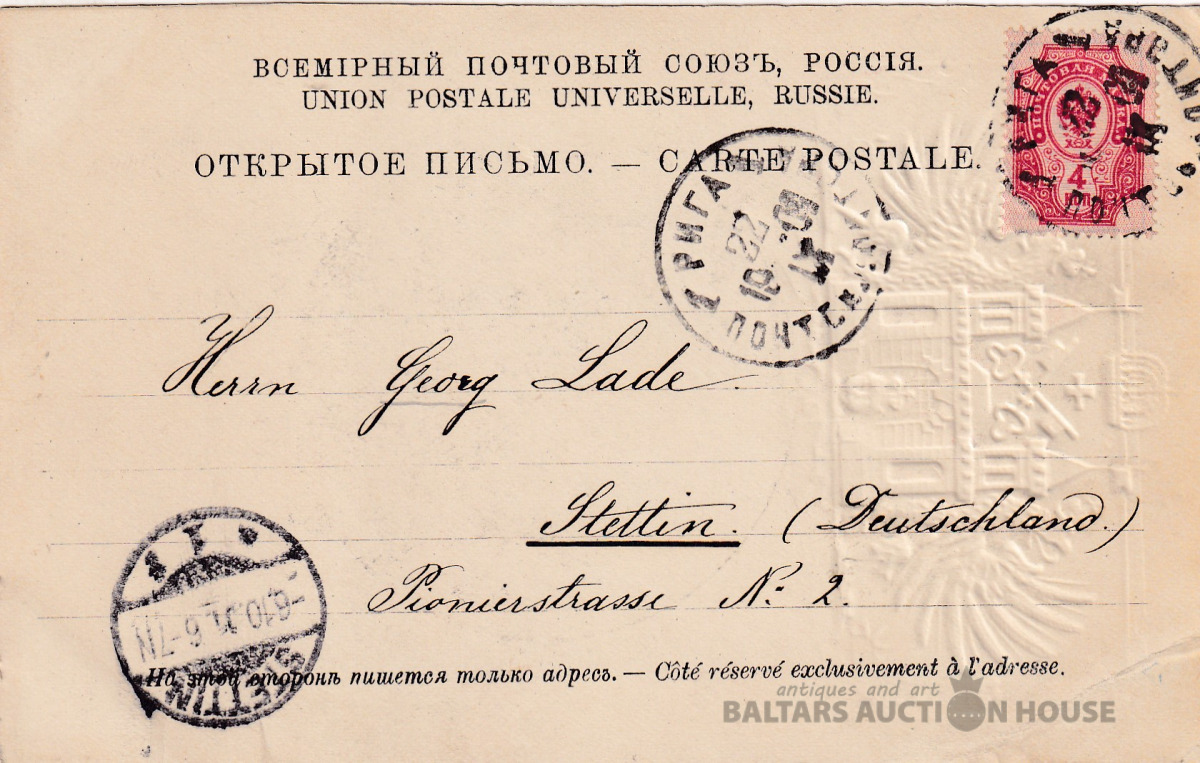 ВСЕМІРНЫЙ ПОЧТОВЫЙ СОЮЗЪ, РОССІЯ.
UNION POSTALE UNIVERSELLE, RUSSIE.
ОТКРЫТОЕ ПИСЬМО. — CARTE POSTALE.
ПОЧТОВАЯ МАРКА
4
РИГА
22
РИГА
Herrn Georg Lade.
Stettin. (Deutschland.)
Pionierstrasse No: 2.
STETTIN
6-7N
На этой сторонѣ пишется только адресъ. — Côté réservé exclusivement à l'adresse.
antiques and art
BALTARS AUCTION HOUSE